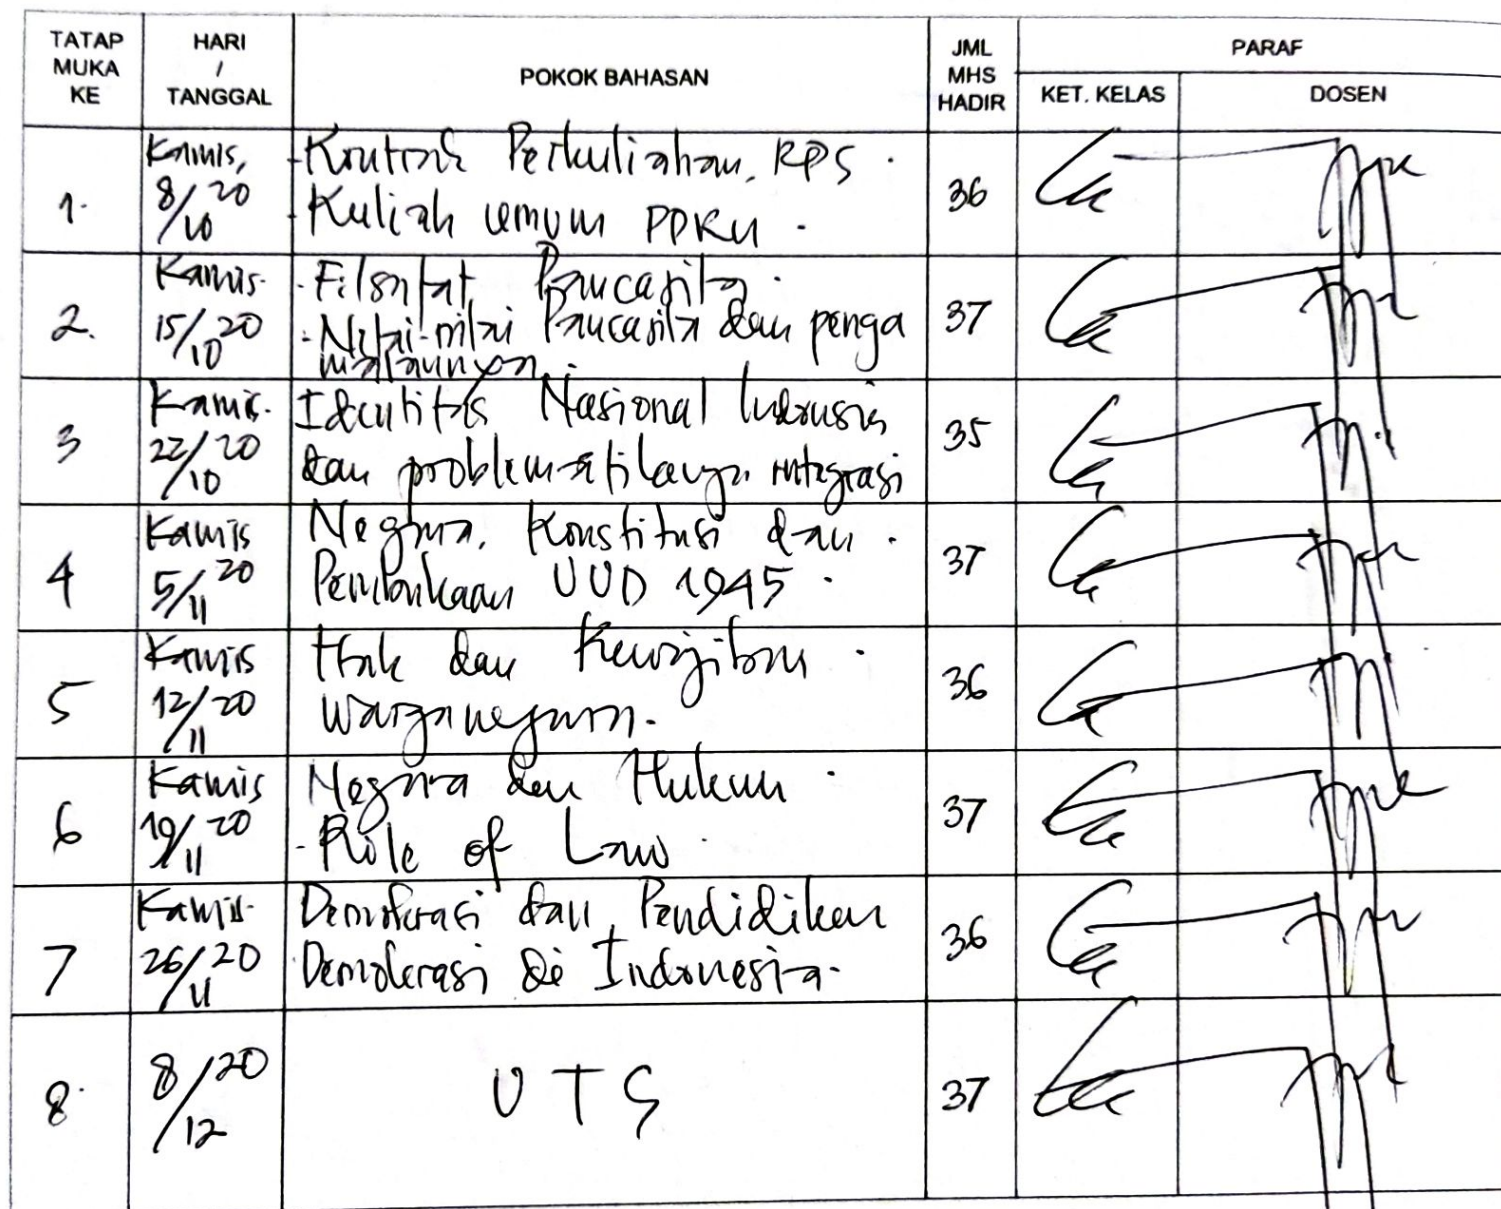 TATAP MUKA KE
HARI / TANGGAL
POKOK BAHASAN
JML MHS HADIR
PARAF
KET. KELAS
DOSEN
1.
Kamis, 8/10 20
- Kontrak Perkuliahan, RPS.
- Kuliah umum PPKn.
36
2.
Kamis. 15/10 20
- Filsafat Pancasila.
- Nilai-nilai Pancasila dan penga
malannya.
37
3
Kamis. 22/10 20
Identitas Nasional Indonesia
dan problematikanya integrasi
35
4
Kamis 5/11 20
Negara, Konstitusi dan.
Pembukaan UUD 1945.
37
5
Kamis 12/11 20
Hak dan Kewajiban.
Warganegara.
36
6
Kamis 19/11 20
Negara dan Hukum.
- Role of Law.
37
7
Kamis. 26/11 20
Demokrasi dan Pendidikan
Demokrasi di Indonesia.
36
8.
8/12 20
UTS
37